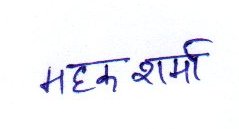 महक शर्मा